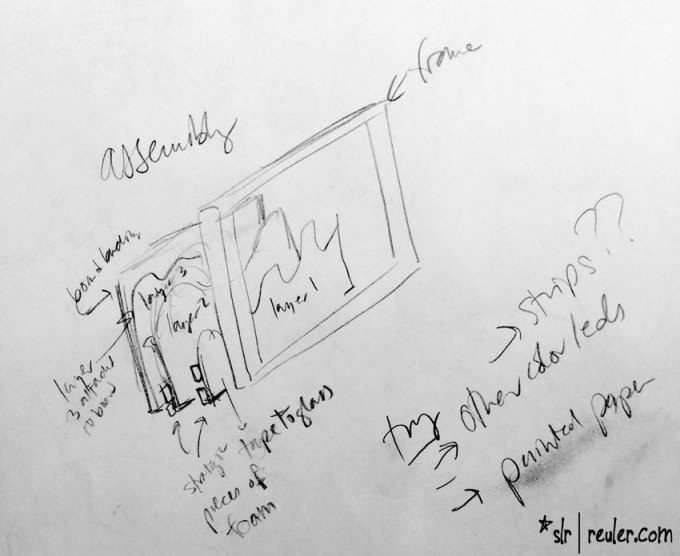 frame
assembly
board backing
layer 3
layer 2
layer 1
layer
3 attached
to board
tape to glass
strategic
pieces of
foam
strips??
try other color leds
painted paper
*slr | reuler.com